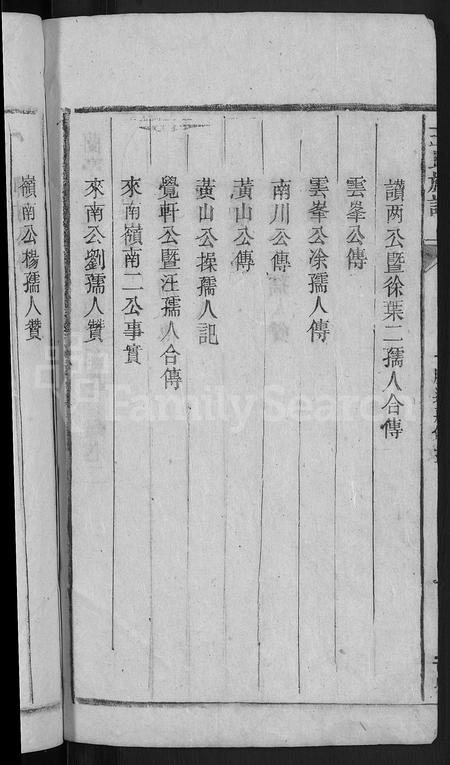 讃两公暨徐葉二孺人合傳
雲峯公傳
雲峯公凃孺人傳
南川公傳
黃山公傳
黃山公操孺人記
覺軒公暨汪孺人合傳
來南嶺南二公事實
來南公劉孺人贊
嶺南公楊孺人贊
FamilySearch